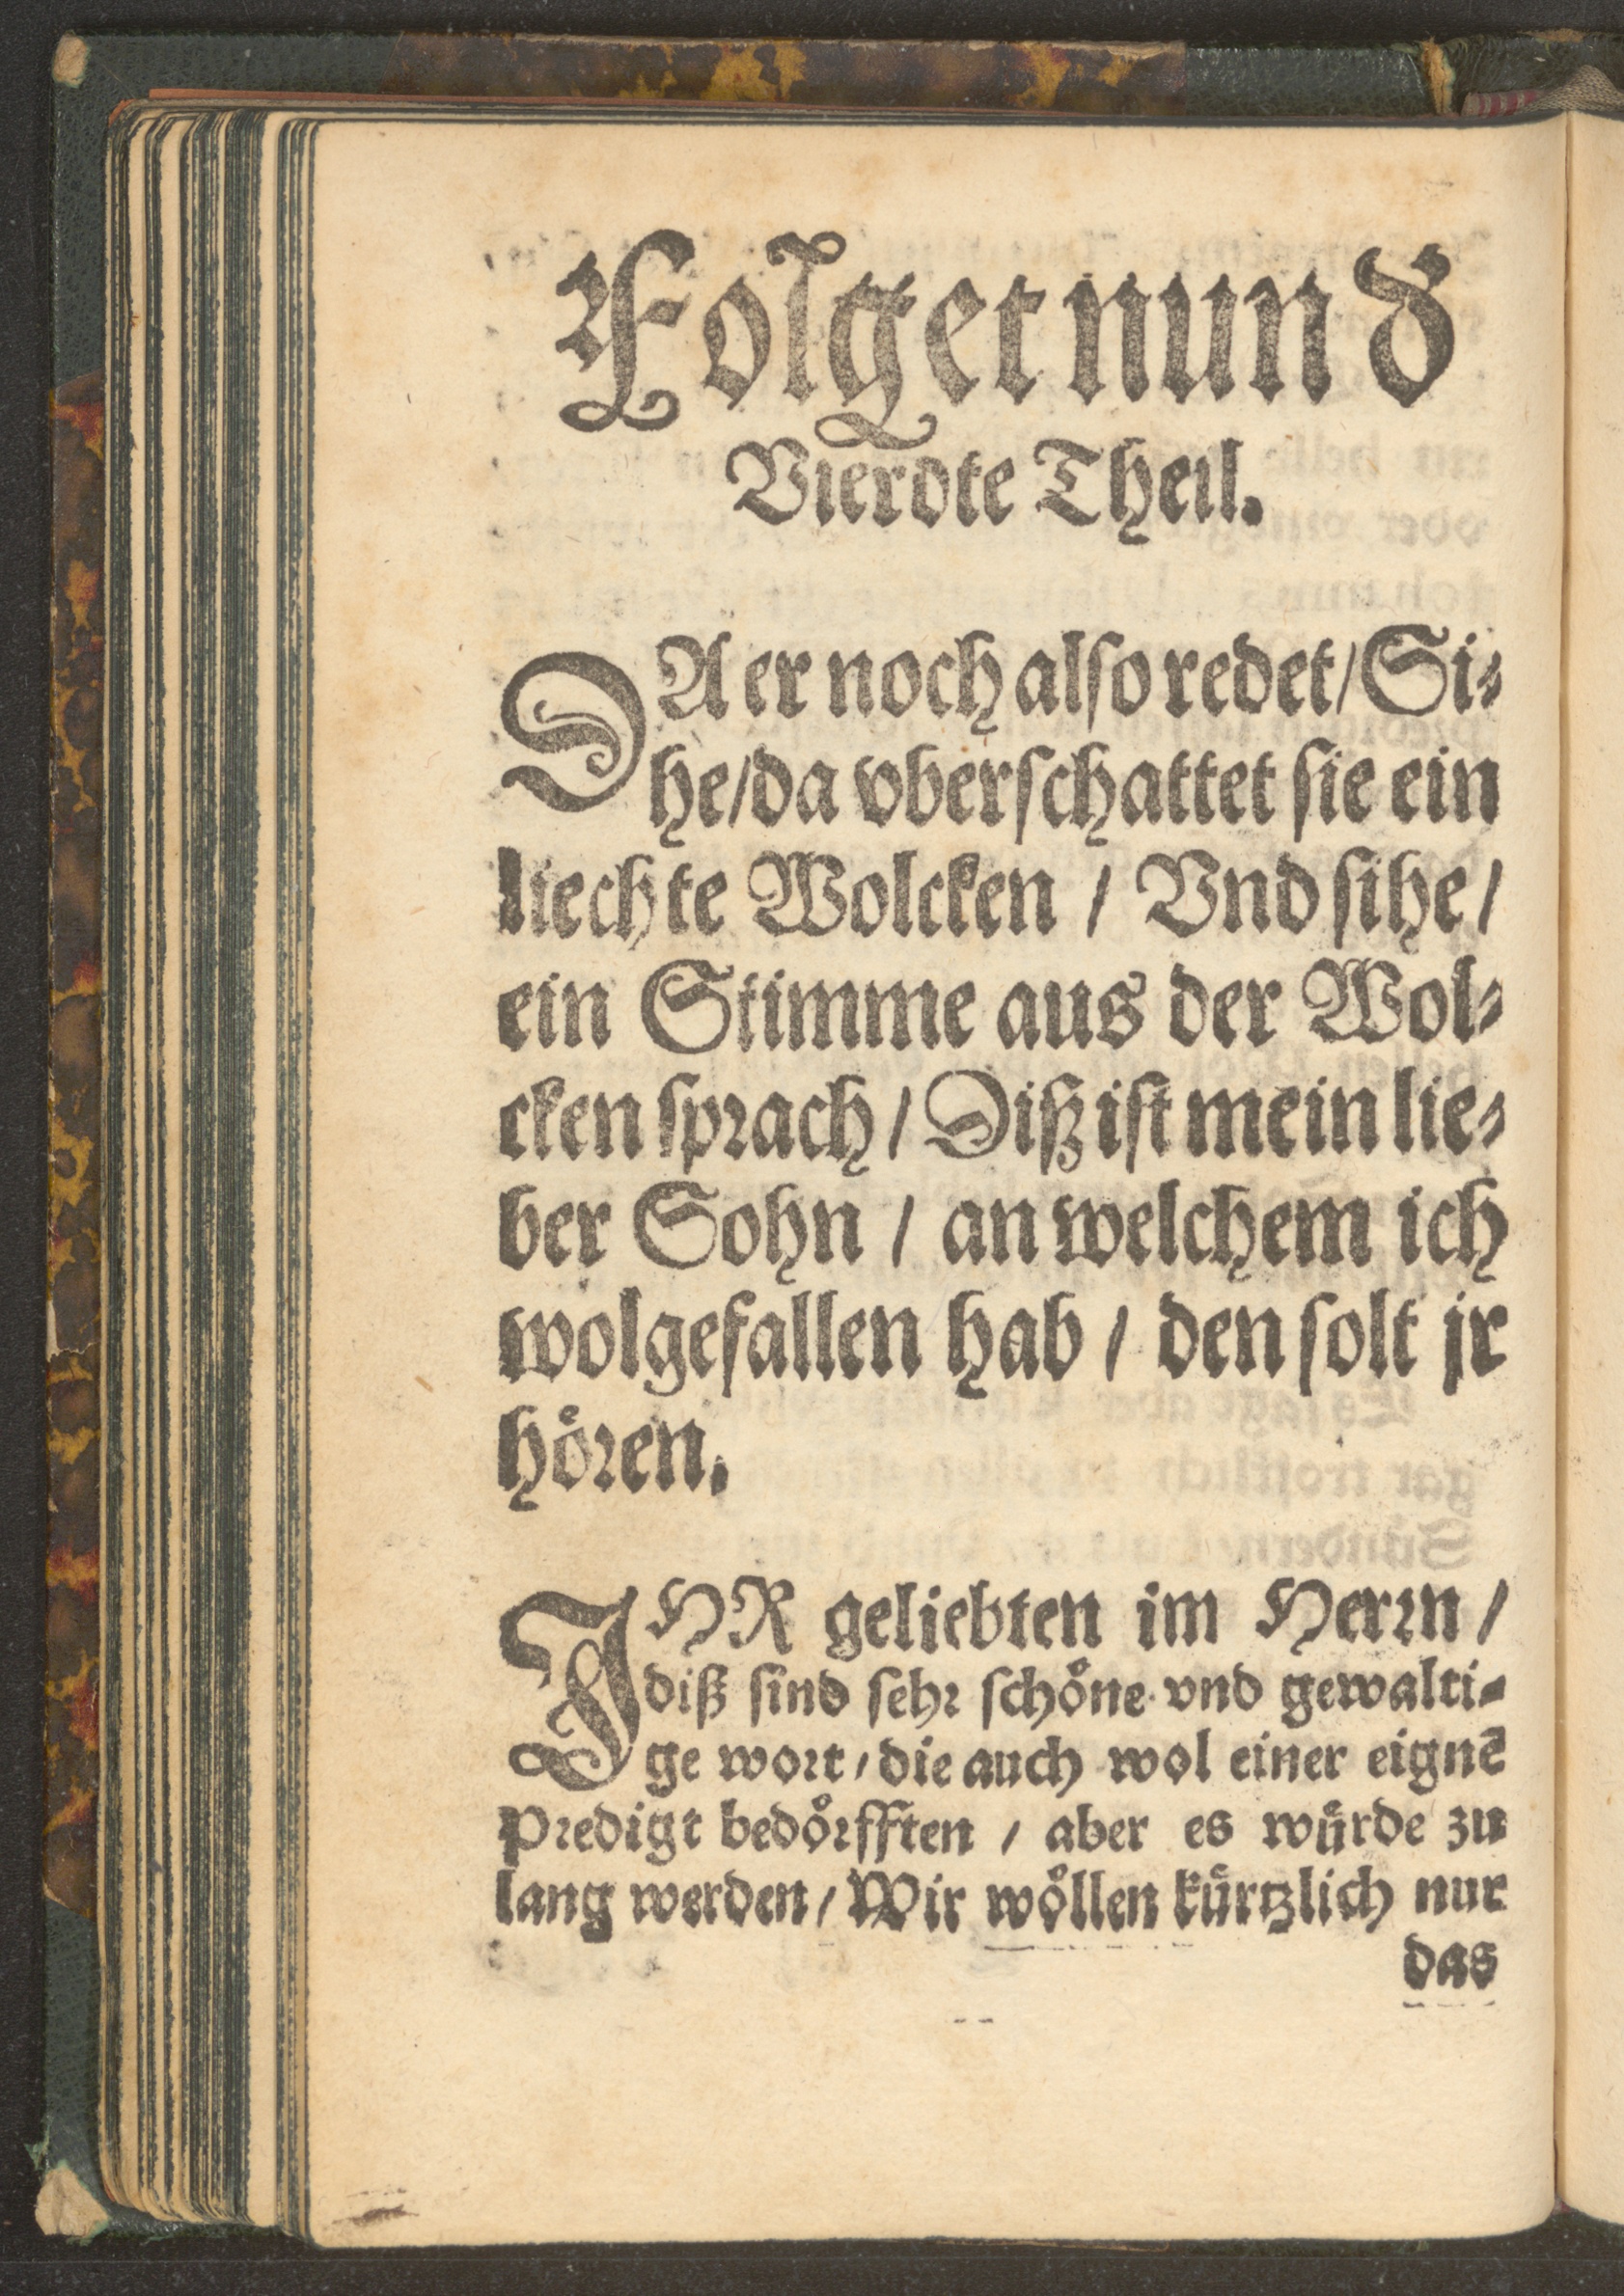 Folget nun d
Vierdte Theil.
DA er noch also redet / Si-
he / da vberschattet sie ein
liechte Wolcken / Vnd sihe /
ein Stimme aus der Wol-
cken sprach / Diß ist mein lie-
ber Sohn / an welchem ich
wolgefallen hab / den solt jr
hoͤren.
IHR geliebten im Herrn /
diß sind sehr schoͤne vnd gewalti-
ge wort / die auch wol einer eignē
Predigt bedoͤrfften / aber es wuͤrde zu
lang werden / Wir woͤllen kuͤrtzlich nur
das